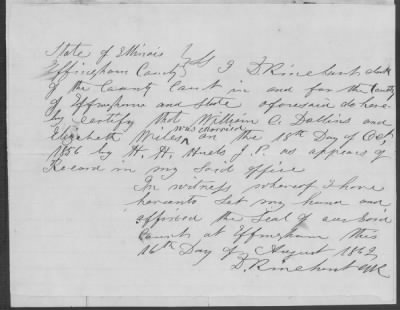 State of Illinois } SS
Effingham County } I D. Rinehart clerk
of the County Court in and for the County
of Effingham and State aforesaid do here
by Certify that William C. Dollins and
Elizabeth Wiles was married on the 18th Day of Oct,
1856 by H. H. J. P. as appears of
Record in my said office
In witness whereof I have
hereunto Set my hand and
affixed the Seal of our said
Court at Effingham this
16th Day of August 1862
D. Rinehart Clk